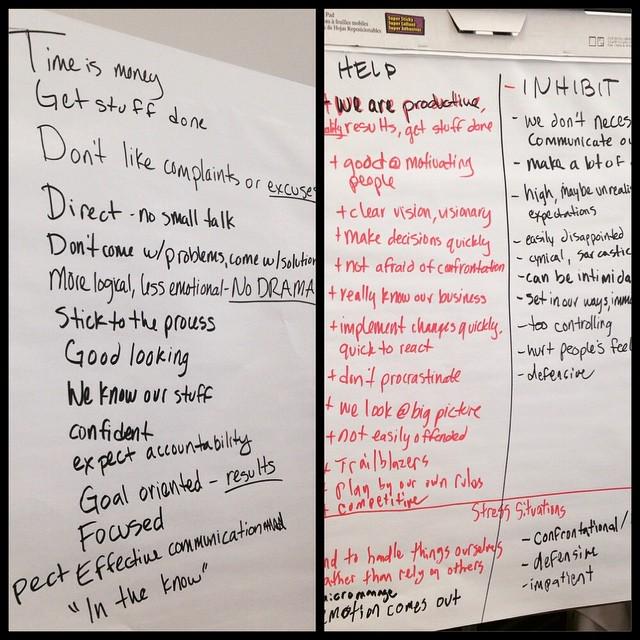 Time is money
Get stuff done
Don't like complaints or excuse
Direct - no small talk
Don't come w/problems, come w/solution
More logical, less emotional - NO DRAMA
Stick to the process
Good looking
We know our stuff
confident
expect accountability
Goal oriented - results
Focused
pect Effective communication
"In the know"
Pad
Super Sticky
de Hojas Reposicionables
HELP
+ we are productive,
results, get stuff done
+ good @ motivating
people
+ clear vision, visionary
+ make decisions quickly
+ not afraid of confrontation
+ really know our business
+ implement changes quickly,
quick to react
+ don't procrastinate
+ we look @ big picture
+ not easily offended
+ Trailblazers
+ Plan by our own rules
+ competitive
- INHIBIT
- we don't neces
communicate ou
- make a lot of
- high, maybe unreali
expectations
- easily disappointed
- cynical, sarcastic
- can be intimida
- set in our ways, imm
- too controlling
- hurt people's feel
- defensive
Stress Situations
nd to handle things ourselves
ather than rely on others
icromanage
emotion comes out
- confrontational/
- defensive
- impatient